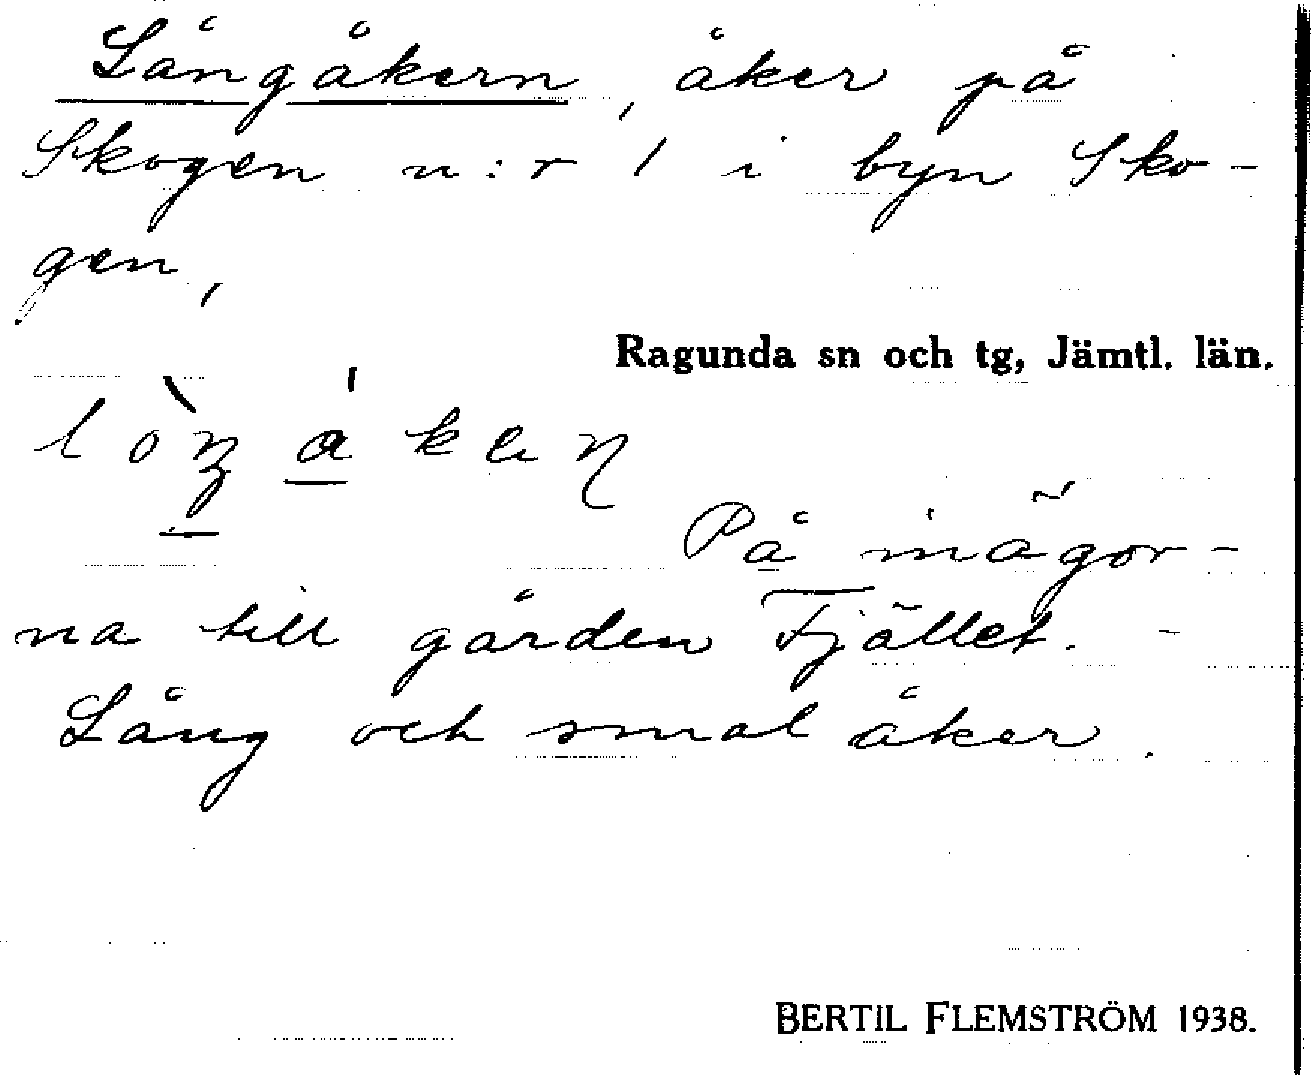 Långåkern, åker på
Skogen n:r 1 i byn Sko-
gen,
Ragunda sn och tg, Jämtl. län.
På inägor-
na till gården Fjället. -
Lång och smal åker.
BERTIL FLEMSTRÖM 1938.